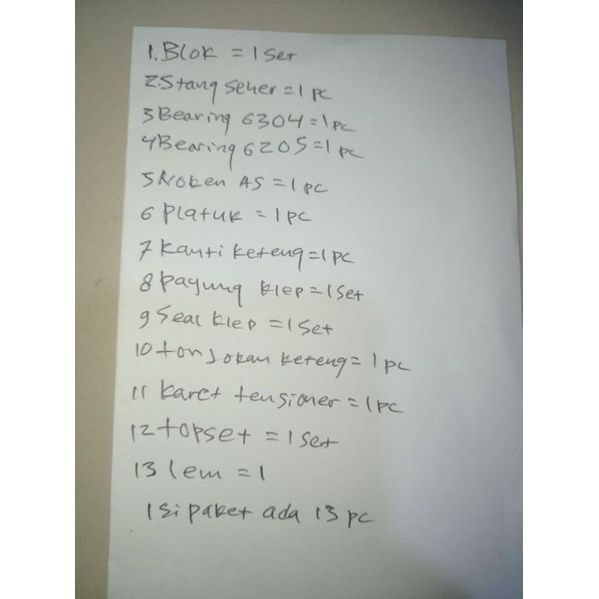 1. Blok = 1 Set
2. Stang seher = 1 pc
3 Bearing 6304 = 1 pc
4 Bearing 6205 = 1 pc
5 Noken AS = 1 pc
6 Platuk = 1 pc
7 Ranti keteng = 1 pc
8 Payung klep = 1 Set
9 Seal klep = 1 Set
10 tonJokan keteng = 1 pc
11 karet tensioner = 1 pc
12 topset = 1 set
13 lem = 1
Isi paket ada 13 pc